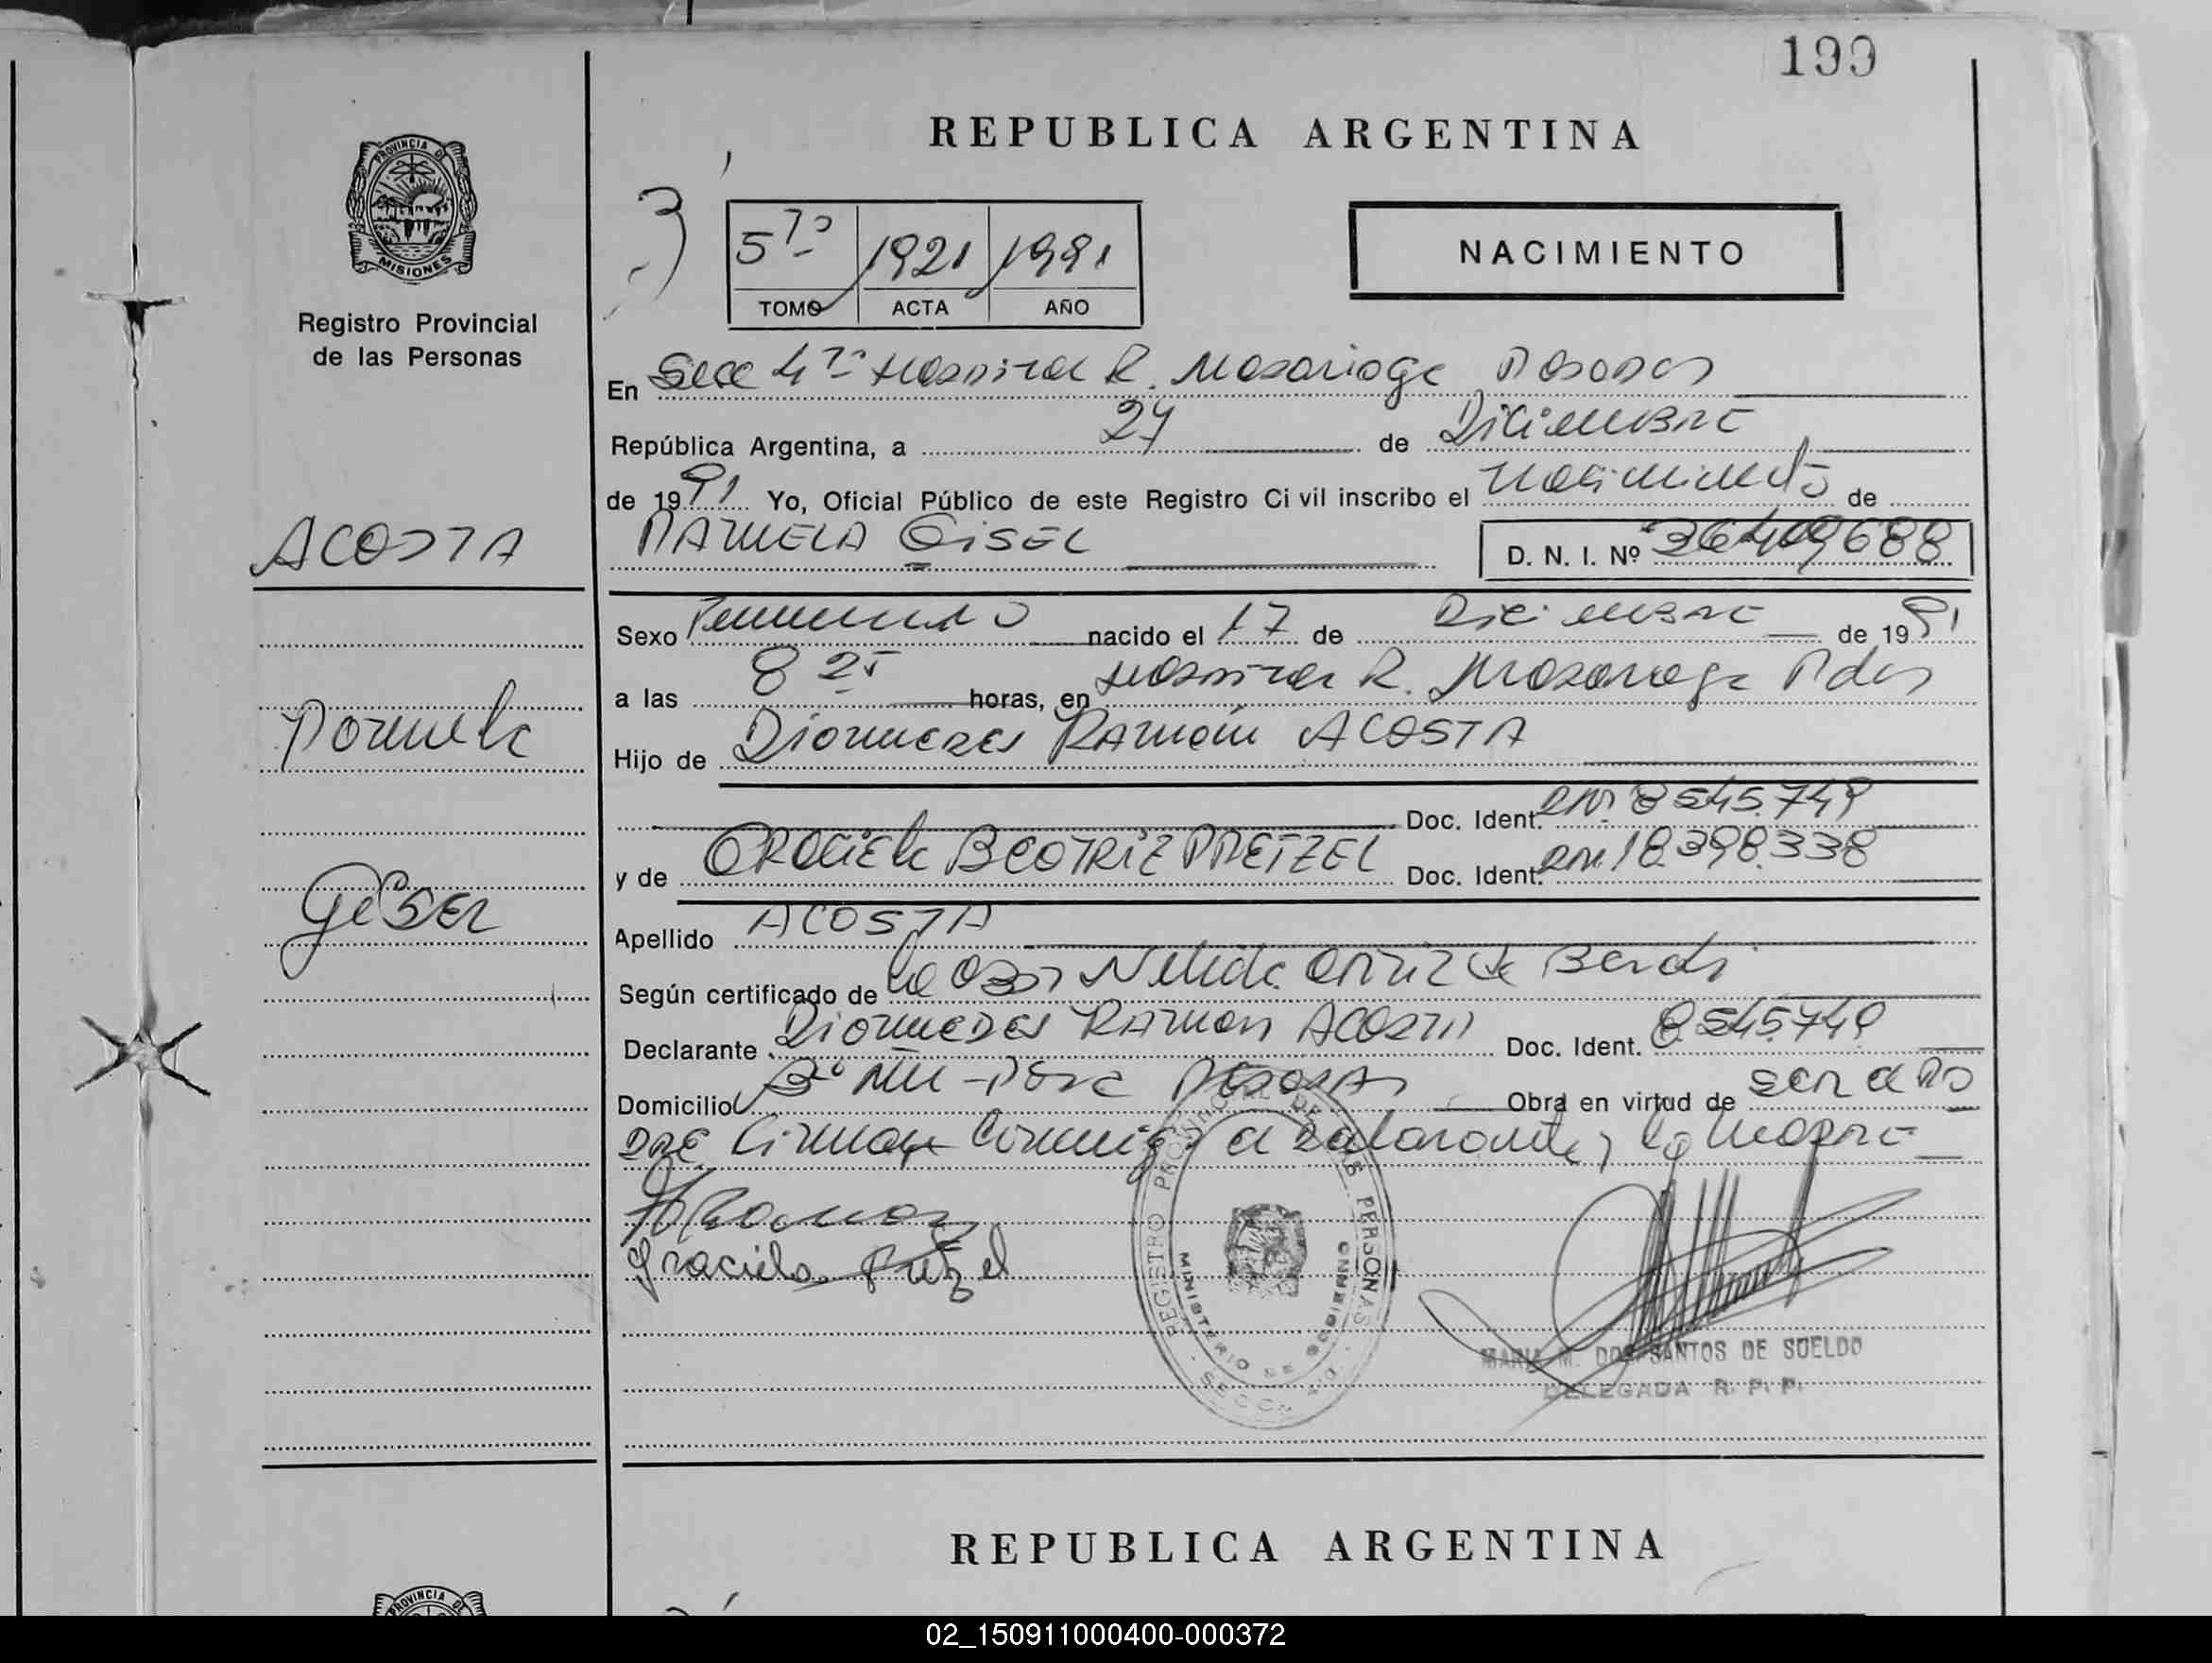 199
REPUBLICA ARGENTINA
PROVINCIA DE
MISIONES
Registro Provincial
de las Personas
5to 1921 1991
TOMO ACTA AÑO
NACIMIENTO
En Secc 4ta Hospital R. Madariaga Posadas
República Argentina, a 27 de Diciembre
de 1991 Yo, Oficial Público de este Registro Civil inscribo el nacimiento de
PAMELA GISEL
D. N. I. Nº 36409688
ACOSTA
Pamela
Gisel
Sexo Femenino nacido el 17 de Diciembre de 1991
a las 8 25 horas, en Hospital R. Madariaga Pdas
Hijo de Diomedes Ramón ACOSTA
Doc. Ident. DNI 8545.749
y de GRACIELA BEATRIZ PRETZEL Doc. Ident. DNI 18.398.338
Apellido ACOSTA
Según certificado de la Obst Nelida Ortiz de
Declarante Diomedes Ramon Acosta Doc. Ident. 8.545.749
Domicilio Bº Posadas Obra en virtud de ser el Pad
dre Firman Conmigo el declarante y la Madre
Graciela Pretzel
REGISTRO PROVINCIAL DE LAS PERSONAS
MINISTERIO DE GOBIERNO
SECC.
MARIA M. DOS SANTOS DE SUELDO
DELEGADA R. P. P.
REPUBLICA ARGENTINA
PROVINCIA DE
02_150911000400-000372